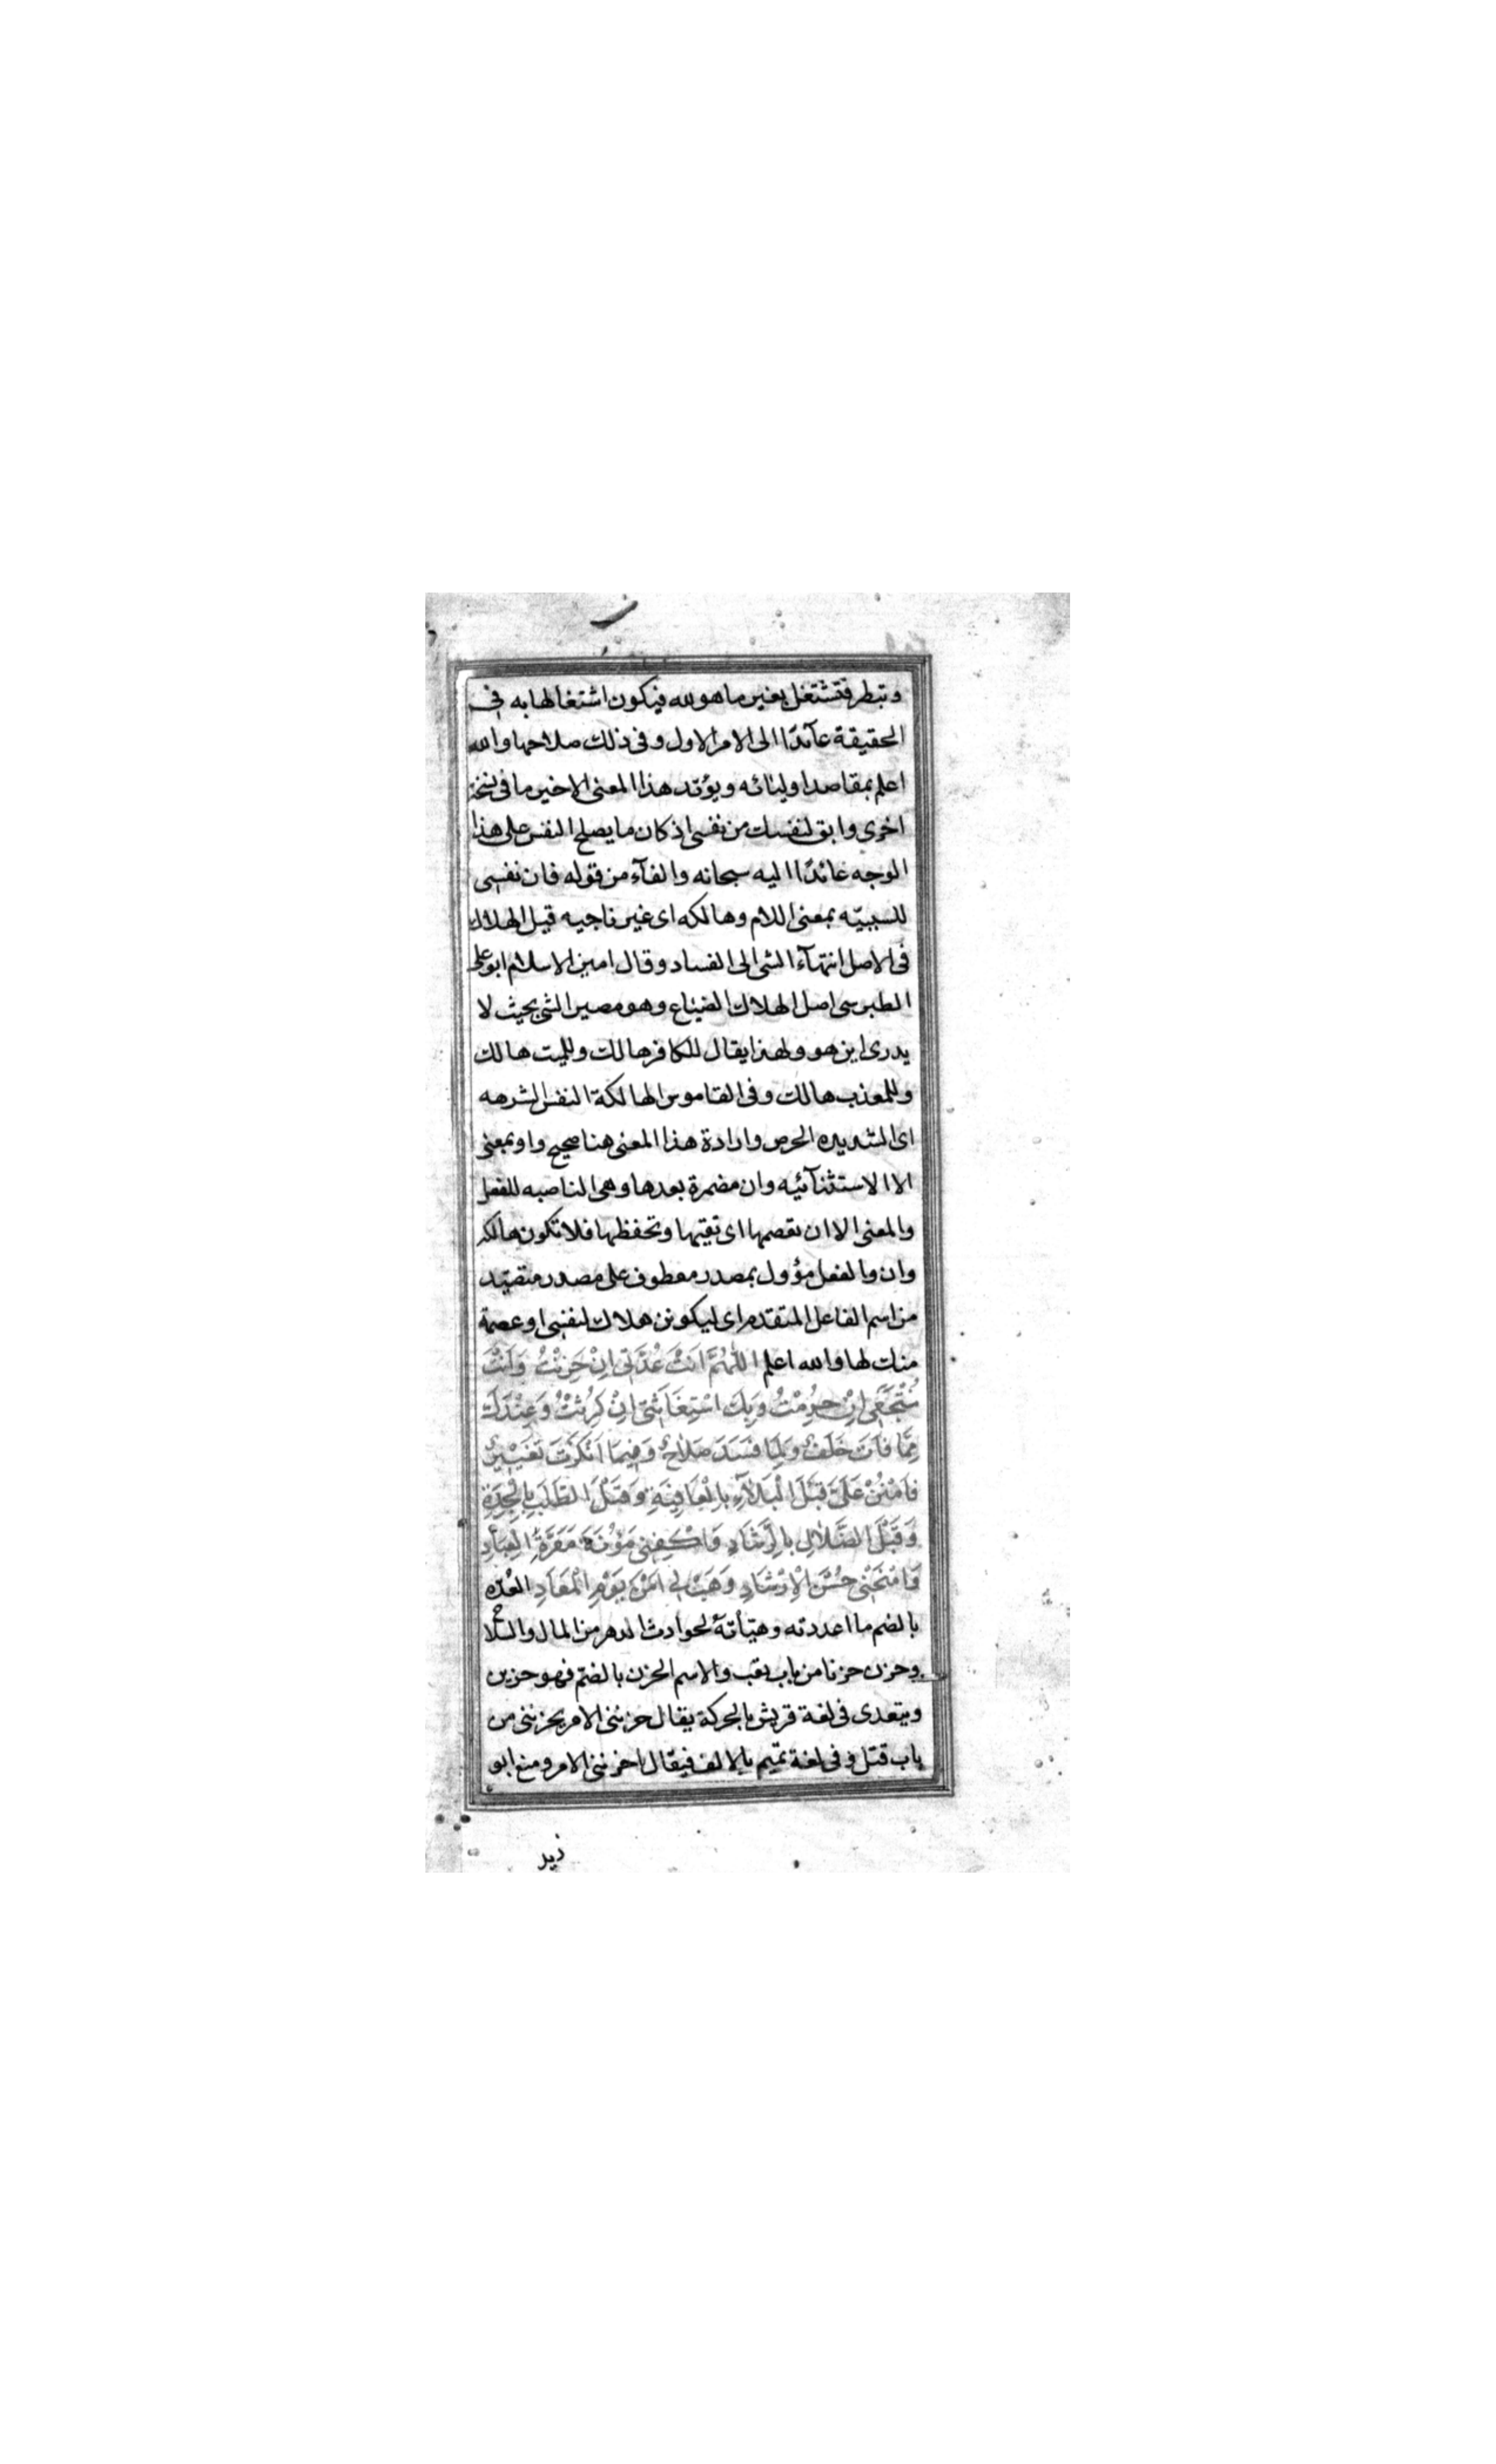 وتبطر فتشتغل بغير ما هو لله فيكون اشتغالها به في
الحقيقة عآئدًا الى الامر الاول وفى ذلك صلاحها والله
اعلم بمقاصد اوليائه ويؤيد هذا المعنى الاخير ما فى نسخة
اخرى وابق لنفسك من نفسى اذ كان ما يصلح النفس على هذا
الوجه عائدًا اليه سبحانه والفآء من قوله فان نفسى
للسببيّه بمعنى اللام وهالكه اى غير ناجيه قيل الهلاك
فى الاصل انتهآء الشى الى الفساد وقال امين الاسلام ابو على
الطبرسى اصل الهلاك الضياع وهو مصير الشى بحيث لا
يدرى اين هو ولهذا يقال للكافر هالك وللميت هالك
وللمعذب هالك وفى القاموس الهالكة النفس الشرهه
اى الشديده الحرص وارادة هذا المعنى هنا صحيح واو بمعنى
الا الاستثنآئيه وان مضمرة بعدها وهى الناصبه للفعل
والمعنى الا ان تعصمها اى تقيها وتحفظها فلا تكون هالكه
وان والفعل مؤول بمصدر معطوف على مصدر متصيّد
من اسم الفاعل المتقدم اى ليكونن هلاك لنفسى او عصمة
منك لها والله اعلم اللّٰهُمَّ اَنْتَ عُدَّتى اِنْ حَزِنْتُ وَاَنْتَ
مُنْتَجَعى اِنْ حُرِمْتُ وَبِكَ اسْتِغَاثَتى اِنْ كَرِثْتُ وَعِنْدَكَ
مِمَّا فَاتَ خَلَفٌ وَلِمَا فَسَدَ صَلاٰحٌ وَفِيمَا اَنْكَرْتَ تَغْيِيْرٌ
فَامْنُنْ عَلَىَّ قَبْلَ الْبَلآٰءِ بِالْعَافِيَةِ وَقَبْلَ الطَّلَبِ بِالْجِدَةِ
وَقَبْلَ الضَّلاٰلِ بِالرَّشَادِ وَاكْفِنى مَؤُنَةَ مَعَرَّةِ الْعِبَادِ
وَامْنَحْنى حُسْنَ الْاِرْشَادِ وَهَبْ لى اَمْنَ يَوْمِ الْمَعَادِ العُدّه
بالضم ما اعددته وهيّأته لحوادث الدهر من المال والسلاح
وحزن حزنا من باب تعب والاسم الحزن بالضم فهو حزين
ويتعدى فى لغة قريش بالحركة يقال حزننى الامر يحزننى من
باب قتل وفى لغة تميم بالالف فيقال احزننى الامر ومنع ابو
زيد